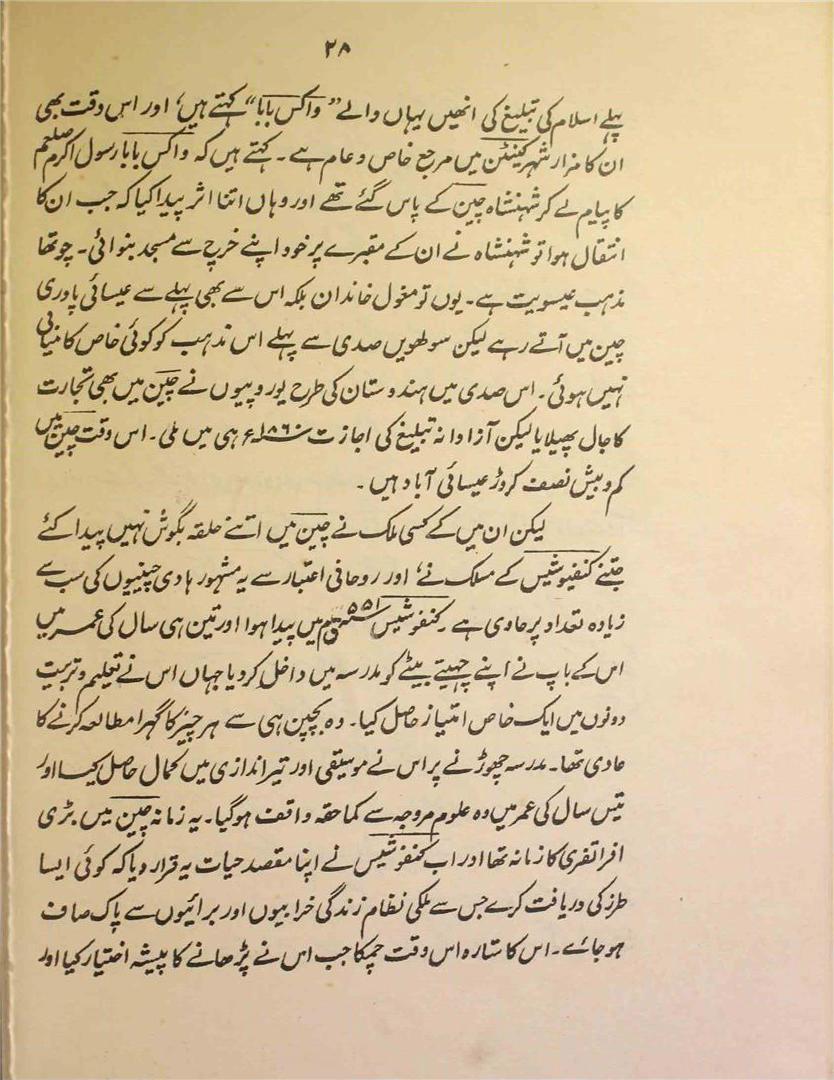 ۲۸
پہلے اسلام کی تبلیغ کی انھیں یہاں والے "واکس بابا" کہتے ہیں، اور اس وقت بھی
ان کا مزار شہر کینٹن میں مرجع خاص و عام ہے۔ کہتے ہیں کہ واکس بابا رسول اکرم صلعم
کا پیام لے کر شہنشاہ چین کے پاس گئے تھے اور وہاں اتنا اثر پیدا کیا کہ جب ان کا
انتقال ہوا تو شہنشاہ نے ان کے مقبرے پر خود اپنے خرچ سے مسجد بنوائی۔ چوتھا
مذہب عیسویت ہے۔ یوں تو مغول خاندان بلکہ اس سے بھی پہلے سے عیسائی پادری
چین میں آتے رہے لیکن سولھویں صدی سے پہلے اس مذہب کو کوئی خاص کامیابی
نہیں ہوئی۔ اس صدی میں ہندوستان کی طرح یوروپیوں نے چین میں بھی تجارت
کا جال پھیلایا لیکن آزادانہ تبلیغ کی اجازت ۱۸۶۰ء ہی میں ملی۔ اس وقت چین میں
کم و بیش نصف کروڑ عیسائی آباد ہیں۔
لیکن ان میں کے کسی ملک نے چین میں اتنے حلقہ بگوش نہیں پیدا کئے
جتنے کنفیوشیس کے مسلک نے، اور روحانی اعتبار سے یہ مشہور ہادی چینیوں کی سب سے
زیادہ تعداد پر حاوی ہے۔ کنفوشیس ۵۵۱ ق م میں پیدا ہوا اور تین ہی سال کی عمر میں
اس کے باپ نے اپنے چہیتے بیٹے کو مدرسہ میں داخل کر دیا جہاں اس نے تعلیم و تربیت
دونوں میں ایک خاص امتیاز حاصل کیا۔ وہ بچپن ہی سے ہر چیز کا گہرا مطالعہ کرنے کا
عادی تھا۔ مدرسہ چھوڑنے پر اس نے موسیقی اور تیراندازی میں کمال حاصل کیا اور
تیس سال کی عمر میں وہ علوم مروجہ سے کماحقہ واقف ہو گیا۔ یہ زمانہ چین میں بڑی
افراتفری کا زمانہ تھا اور اب کنفوشیس نے اپنا مقصد حیات یہ قرار دیا کہ کوئی ایسا
طرز کی دریافت کرے جس سے ملکی نظام زندگی خرابیوں اور برائیوں سے پاک صاف
ہو جائے۔ اس کا ستارہ اس وقت چمکا جب اس نے پڑھانے کا پیشہ اختیار کیا اور